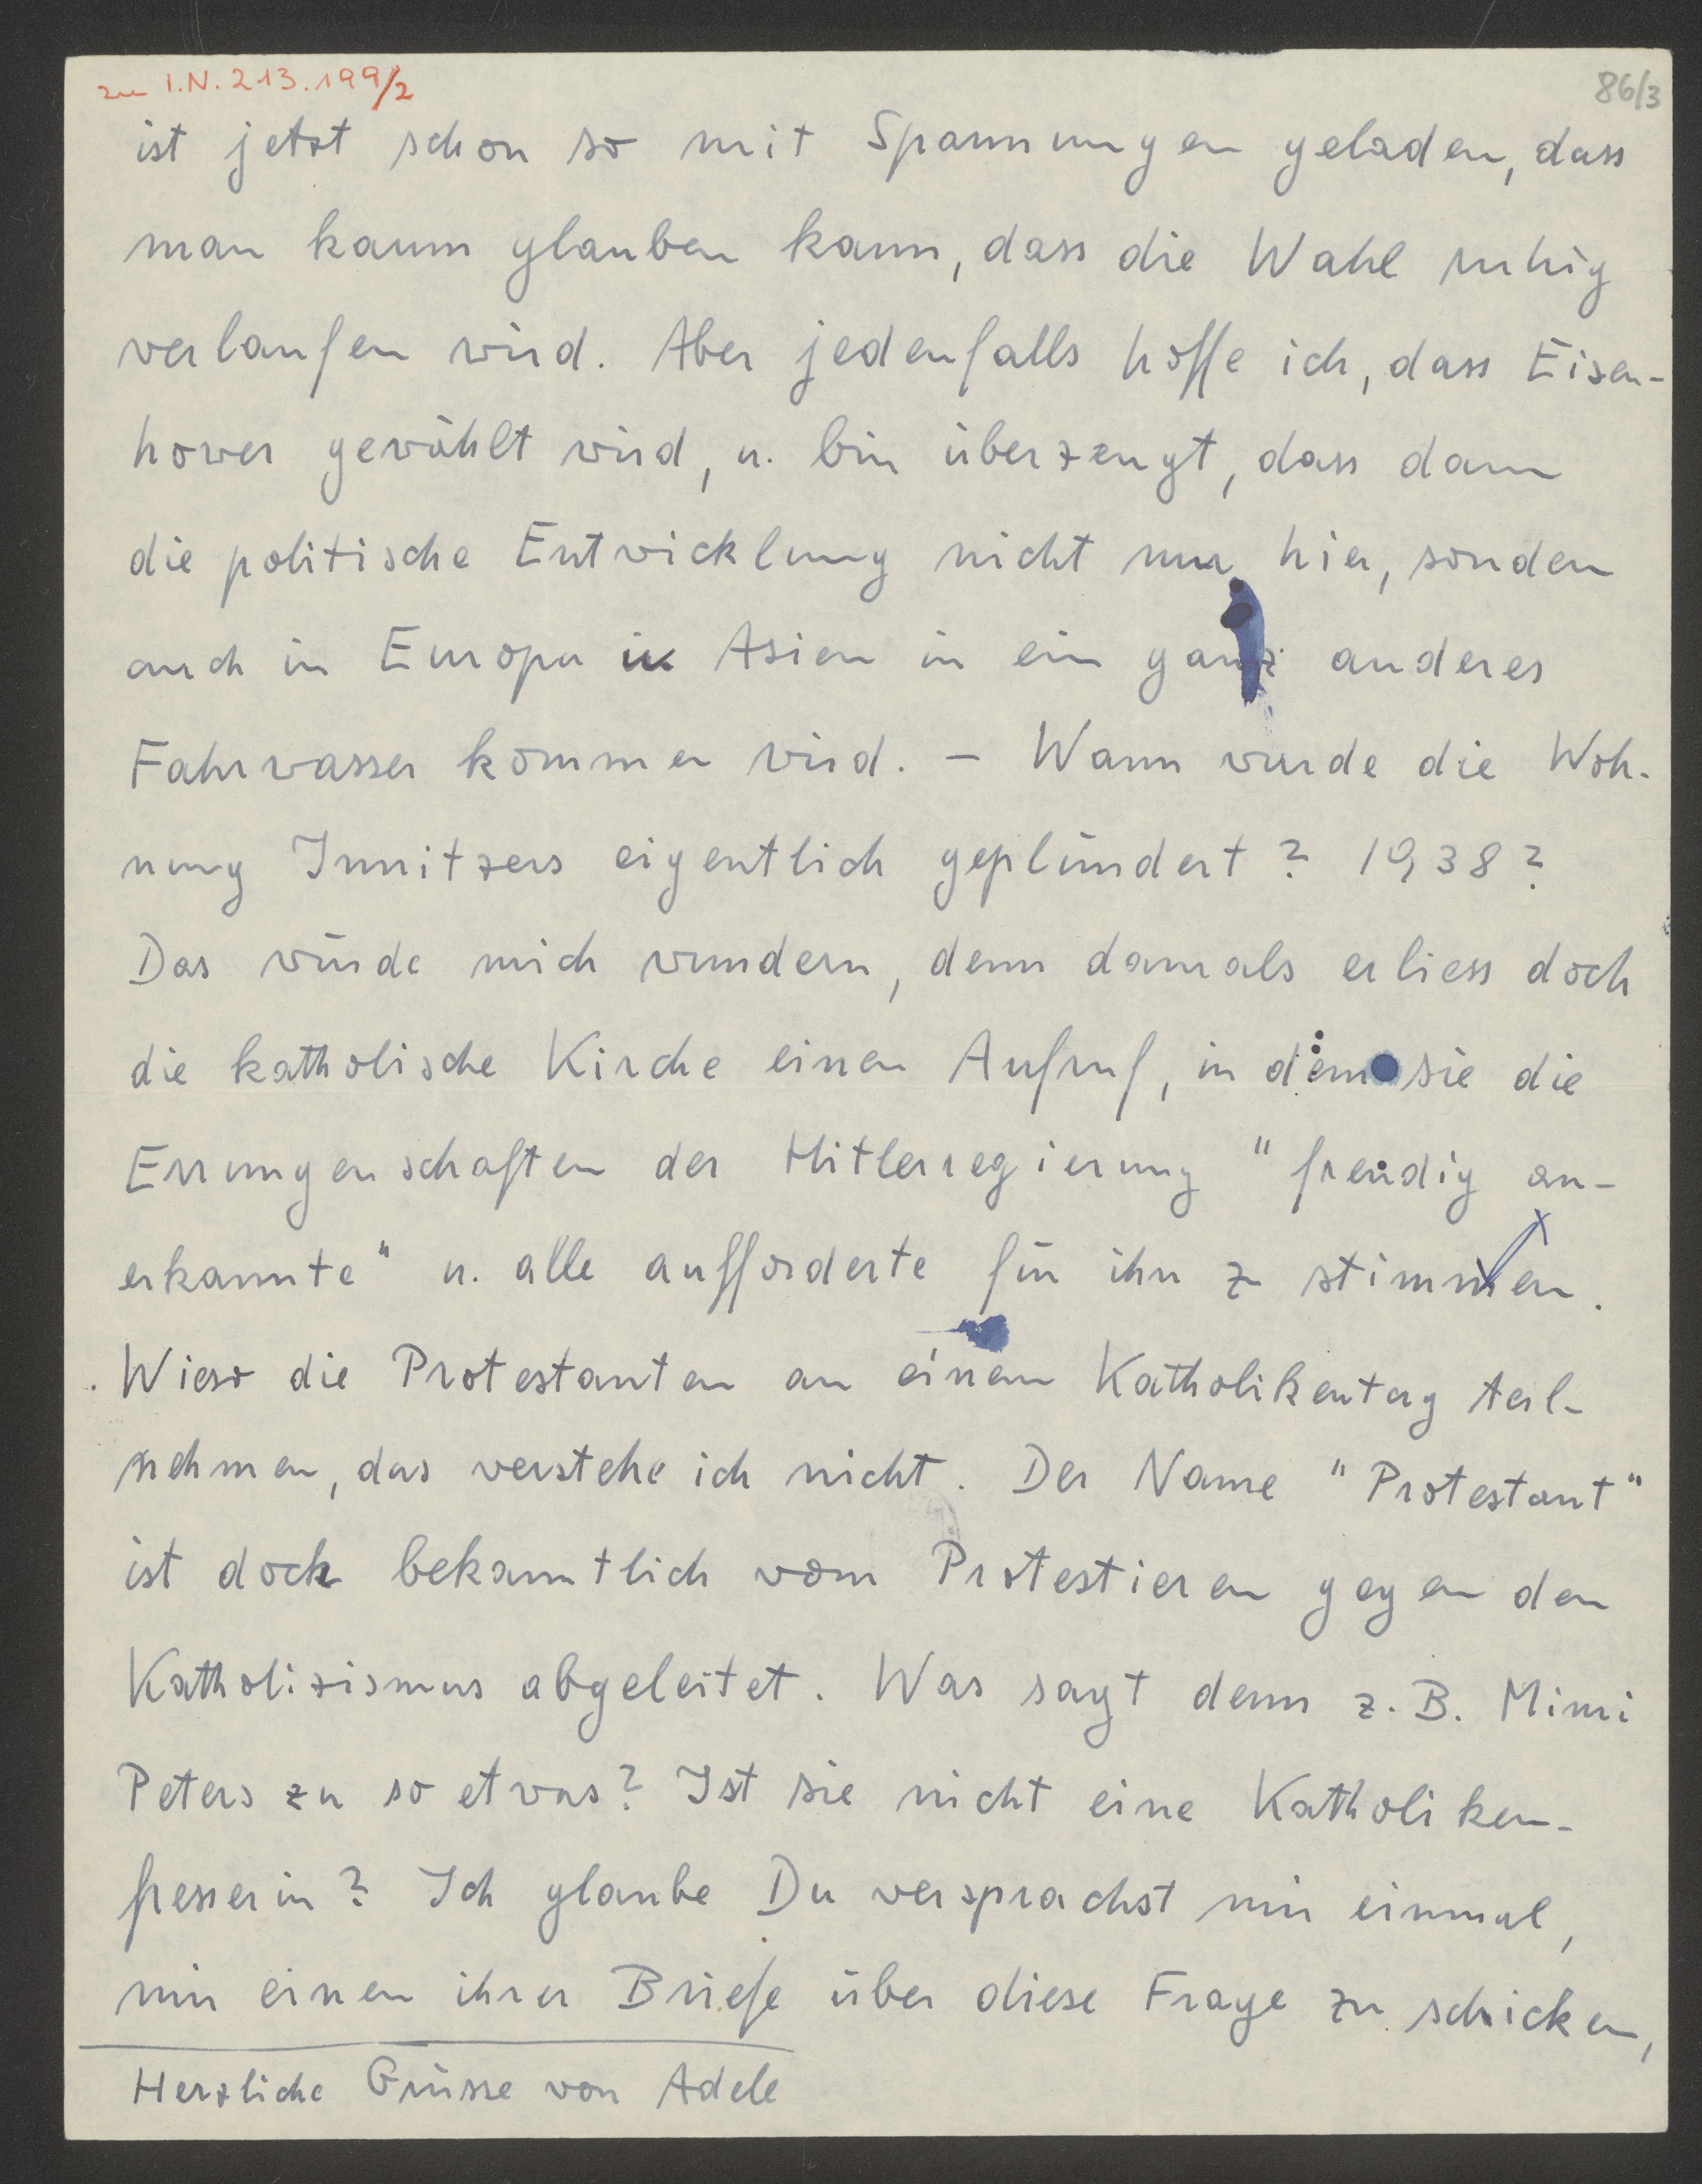 zu I.N. 213.199/2
86/3
ist jetzt schon so mit Spannungen geladen, dass
man kaum glauben kann, dass die Wahl ruhig
verlaufen wird. Aber jedenfalls hoffe ich, dass Eisen-
hower gewählt wird, u. bin überzeugt, dass dann
die politische Entwicklung nicht nur hier, sondern
auch in Europa u. Asien in ein ganz anderes
Fahrwasser kommen wird. – Wann wurde die Woh-
nung Innitzers eigentlich geplündert? 1938?
Das würde mich wundern, denn damals erliess doch
die katholische Kirche einen Aufruf, in dem sie die
Errungenschaften der Hitlerregierung "freudig an-
erkannte" u. alle aufforderte für ihn z stimmen.
Wieso die Protestanten an einem Katholikentag teil-
nehmen, das verstehe ich nicht. Der Name "Protestant"
ist doch bekanntlich vom Protestieren gegen den
Katholizismus abgeleitet. Was sagt denn z. B. Mimi
Peters zu so etwas? Ist sie nicht eine Katholiken-
fresserin? Ich glaube Du versprachst mir einmal,
mir einen ihrer Briefe über diese Frage zu schicken,
Herzliche Grüsse von Adele